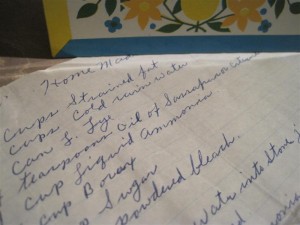 Home Made
cups Strained fat
cups Cold rain water
Can L. Lye
teaspoons Oil of Sassafras or Citronella
cup Liquid Ammonia
cup Borax
Sugar
powdered bleach.
water into stone